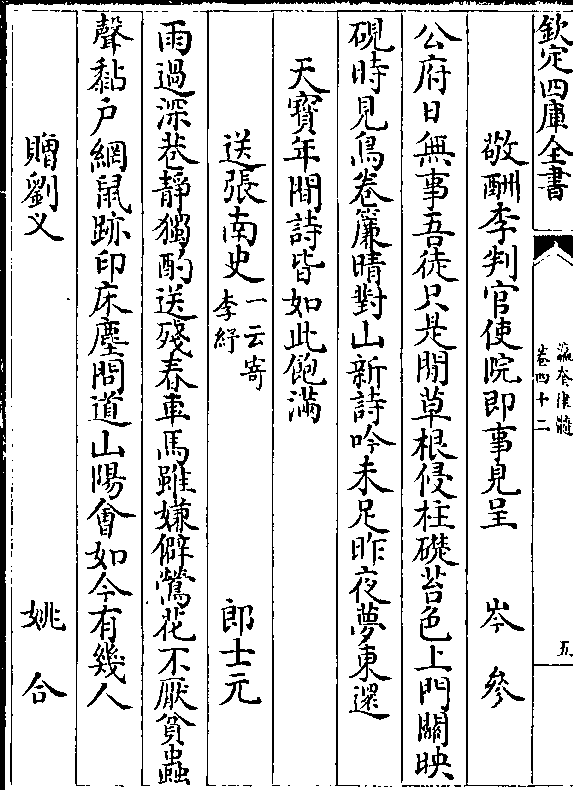 欽定四庫全書
瀛奎律髓
卷四十二
五
敬酬李判官使院即事見呈　岑參
公府日無事吾徒只是閒草根侵柱礎苔色上門闗映
硯時見鳥卷簾晴對山新詩吟未足昨夜夢東還
天寳年間詩皆如此飽滿
送張南史一云寄李紓　郎士元
雨過深巷靜獨酌送殘春車馬雖嫌僻鶯花不厭貧蟲
聲黏户網鼠跡印床塵問道山陽會如今有幾人
贈劉乂　姚合